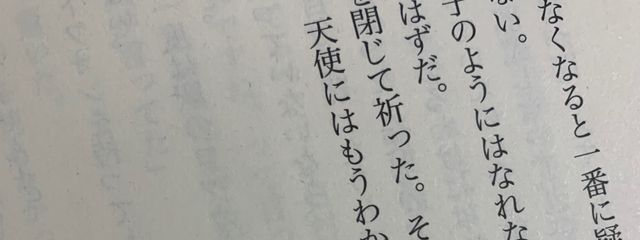 なくなると一番に疑
ない。
子のようにはなれな
はずだ。
閉じて祈った。そ
天使にはもうわか